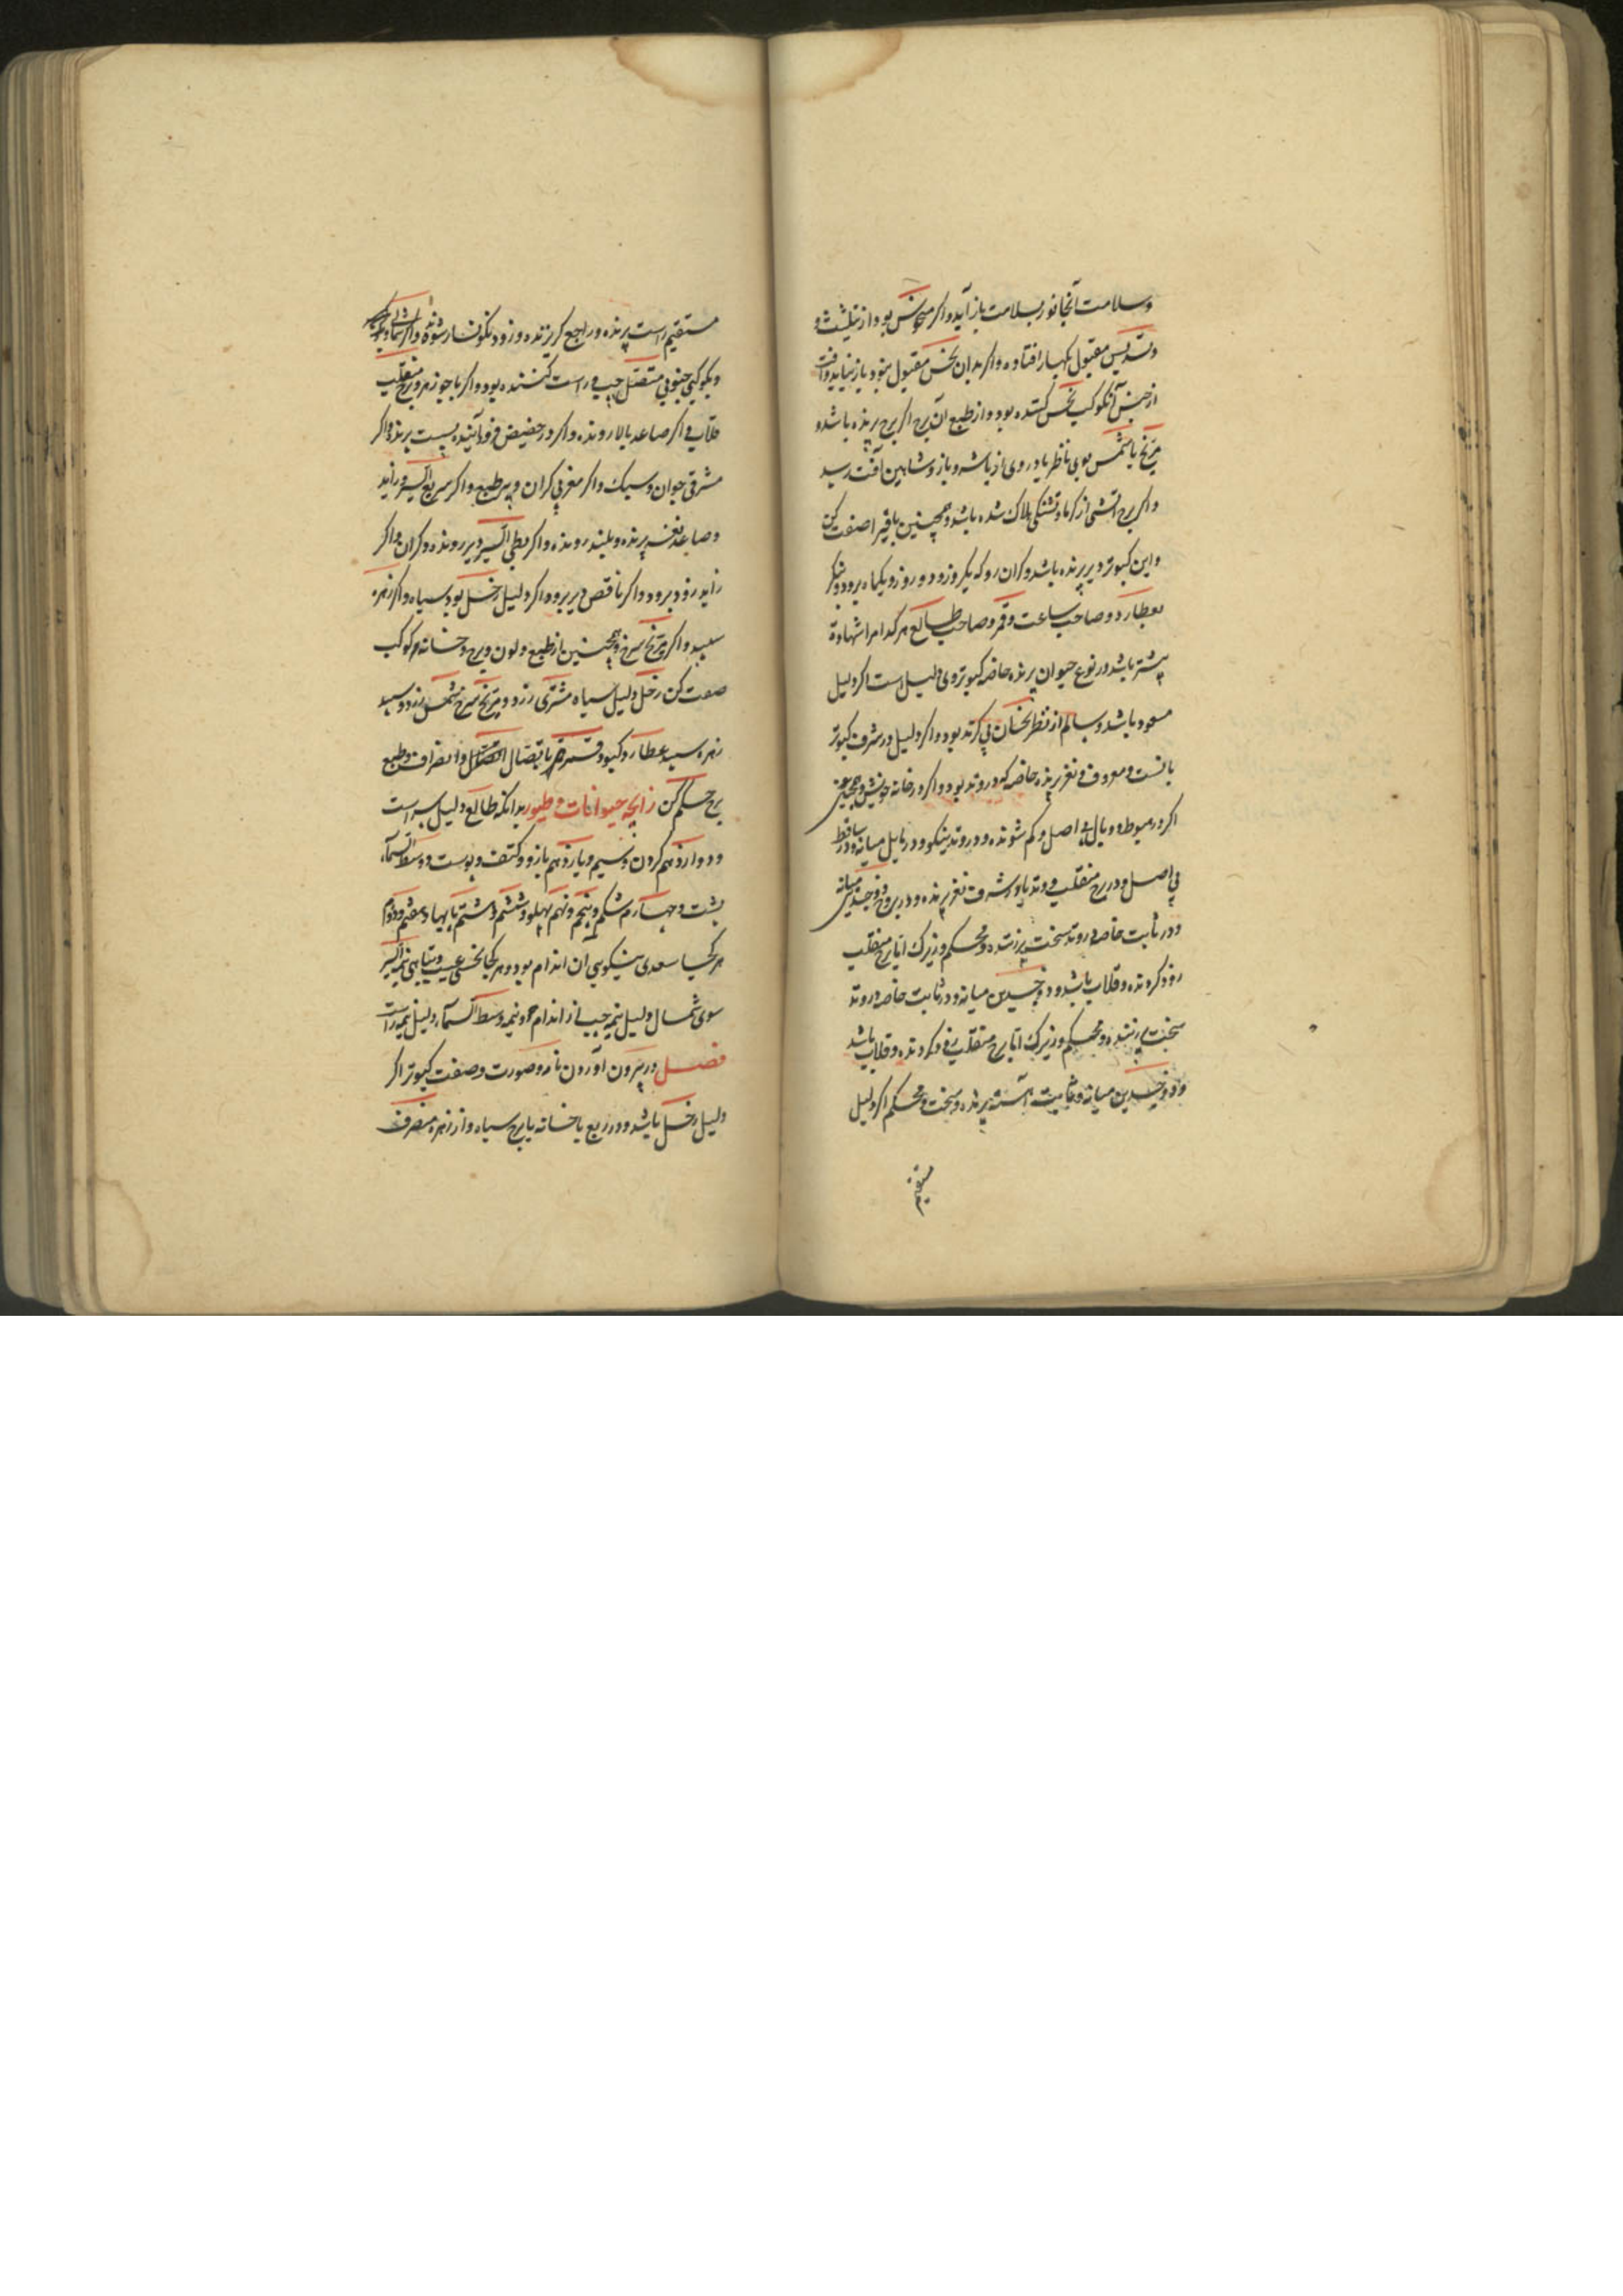 وسلامت آنجانور بسلامت باز آید واکر منحوس بود از تثلیث و
وتسدیس مقبول بکهیار افتاده واکر بدان نحس مقبول بنود باز نیاید وآفت
از جنس آنکوکب نحس کننده بود واز طبع آن برج اکر برج پرنده باشد و
مریخ یا شمس بوی ناظر یا در وی از باشه و باز وشاهین آفت رسید
واکر برج آتشی از کرما وتشنکی هلاک شده باشد وهمچنین باقیرا صفت کن
واین کبوتر دیر پرنده باشد وکران رو که بکروز ودو روز ویکماه برود وبنکر
بعطارد وصاحب ساعت وقمر وصاحب طالع هر کدامرا شهادة
پیشتر باشد در نوع حیوان پرنده خاصه کبوتر وی دلیل است اکر دلیل
مسعود باشد وسالم از نظر نحسان بی کزند بود واکر دلیل در شرف کبوتر
بانست ومعروف ونغز پرنده خاصه که در وتد بود واکر در خانه خویش همچنین
اکر در هبوط ووبال بی اصل وکم شونده ودر وتد نیکو ودر مایل میانه ودر ساقط
بی اصل ودر برج منقلب ووتد یا در شرف نغز پرنده ودر بروج ذو جسدین میانه
ودر ثابت خاصه در وتد سخت پرنده ومحکم وزیرک اما برج منقلب
زود کردنده وقلاب باشد وذو جسدین میانه ودر ثابت خاصه در وتد
سخت پرنده ومحکم وزیرک اما برج منقلب کردنده وقلاب باشد
وذو جسدین میانه وثابت آهسته پرنده وسخت ومحکم اکر دلیل
مستقیم
مستقیم است پرنده وراجع کریزنده وزود نکونسار شونده واکر شمالی
وبکوکبی جنوبی متصل چپ وراست کننده بود واکر با جوزهر وبرج منقلب
قلابی اکر صاعد بالا رونده واکر در حضیض فرود آینده پست پرد واکر
مشرقی جوان وسبک واکر مغربی کران وپیر طبع واکر سریع السیر وزاید
وصاعد نغز پرنده وبلند رونده واکر بطی السیر دیر رونده وکران واکر
زاید زود برود واکر ناقص دیر برود اکر دلیل زحل بود سیاه واکر زهره
سپید واکر مریخ سرخ وهمچنین از طبع ولون وبرج وخانه هر کوکب
صفت کن زحل دلیل سیاه مشتری زرد ومریخ سرخ شمس زرد وسپید
زهره سپید عطارد کبود وقمر باتصال وانصراف وطبع
برج حکم کن زایجه حیوانات وطیور بدانکه طالع دلیل سر است
ودوازدهم کردن وسیم ویازدهم بازو وکتف وپوست ووسط السماء
پشت وچهارم شکم وپنجم ونهم پهلو وششم وهشتم پایها وهفتم ودوم
هر کجا سعدی نیکویی آن اندام بود وهر کجا نحسی عیب وتباهی نیمه ایسر
سوی شمال دلیل نیمه چپ از اندام ونیمه وسط السماء دلیل نیمه راست
فصل در بیرون آوردن نام وصورت وصفت کبوتر اکر
دلیل زحل باشد ودر ربع یا خانه یا برج سیاه واز زهره منصرف